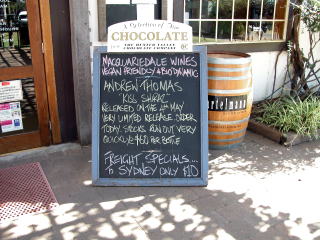 A Selection of Fine
CHOCOLATE
THE HUNTER VALLEY
CHOCOLATE COMPANY
MACQUARIEDALE WINES
VEGAN FRIENDLY & BIODYNAMIC
ANDREW THOMAS
'KISS SHIRAZ'
RELEASED ON THE 1ST MAY
VERY LIMITED RELEASE. ORDER
TODAY. STOCKS RUN OUT VERY
QUICKLY. $60 PER BOTTLE
FREIGHT SPECIALS...
TO SYDNEY ONLY $10